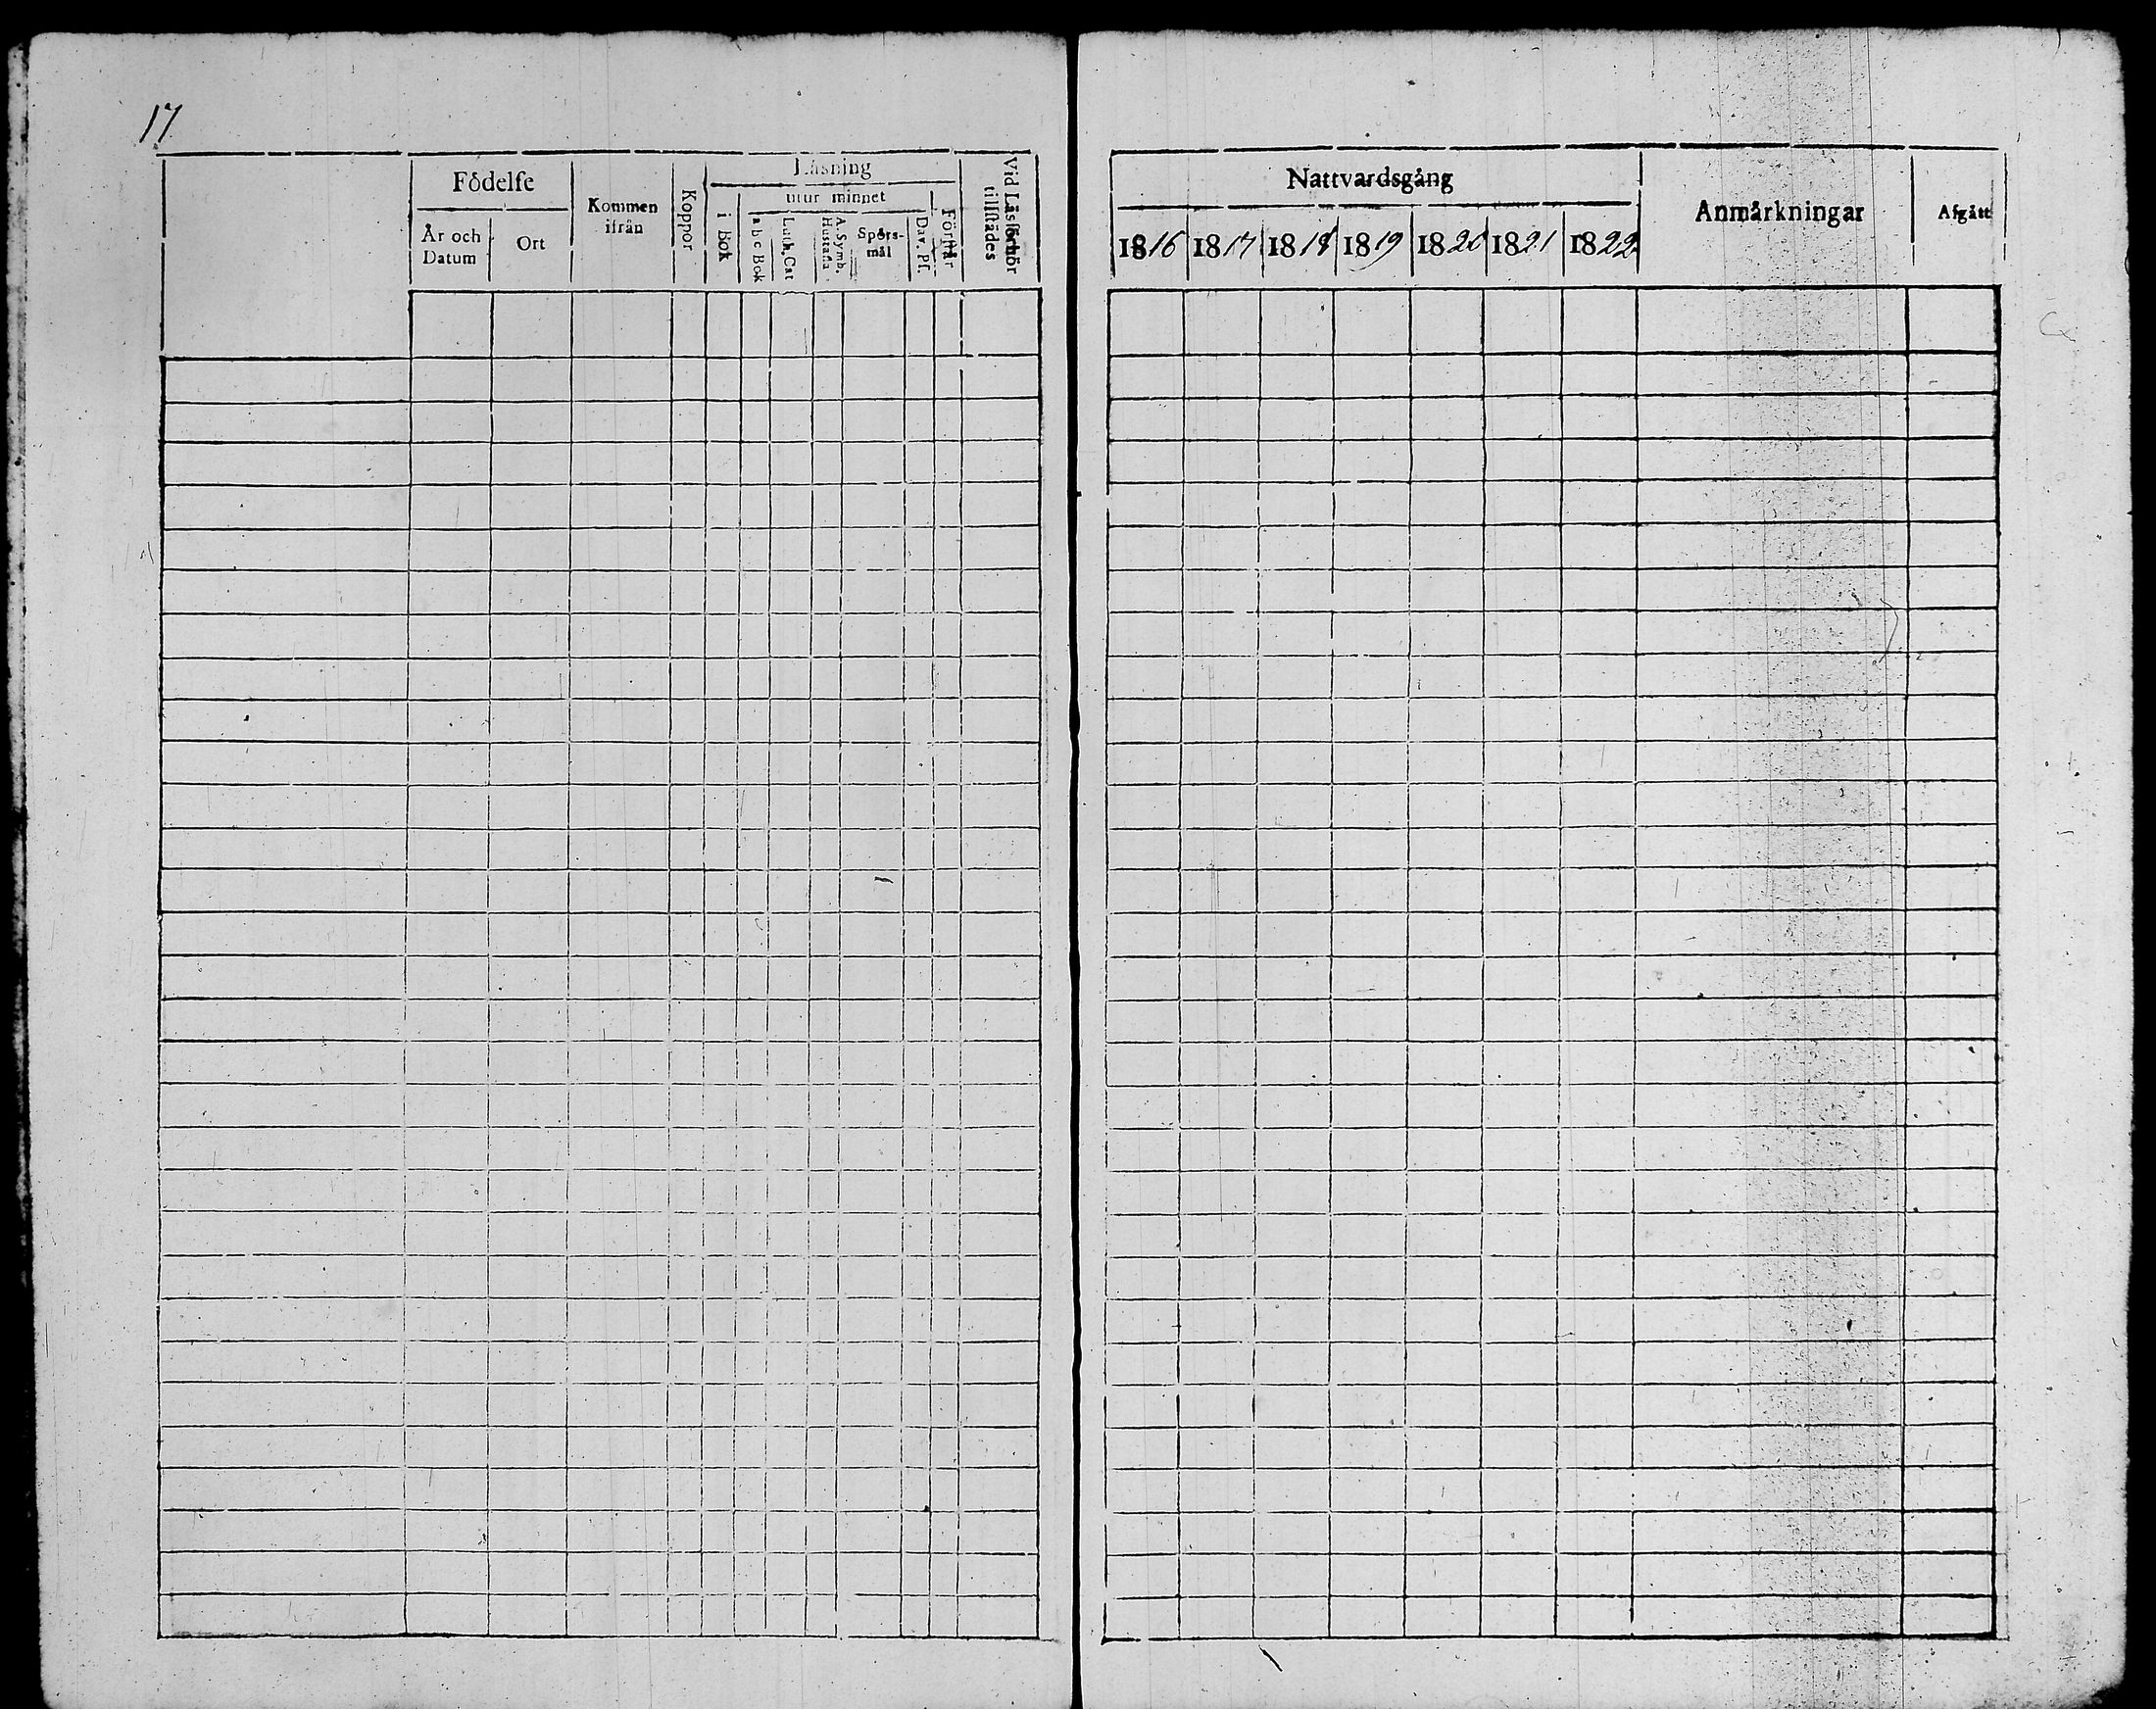 17
Födelse
År och Datum
Ort
Kommen ifrån
Koppor
Läsning
i Bok
utur minnet
a b c Bok
Luth. Cat
A. Symb. Hustafla
Spörs-mål
Dav. Ps.
Förstår
Vid Läsförhör tillstädes
Nattvardsgång
1816 1817 1818 1819 1820 1821 1822
Anmärkningar
Afgått